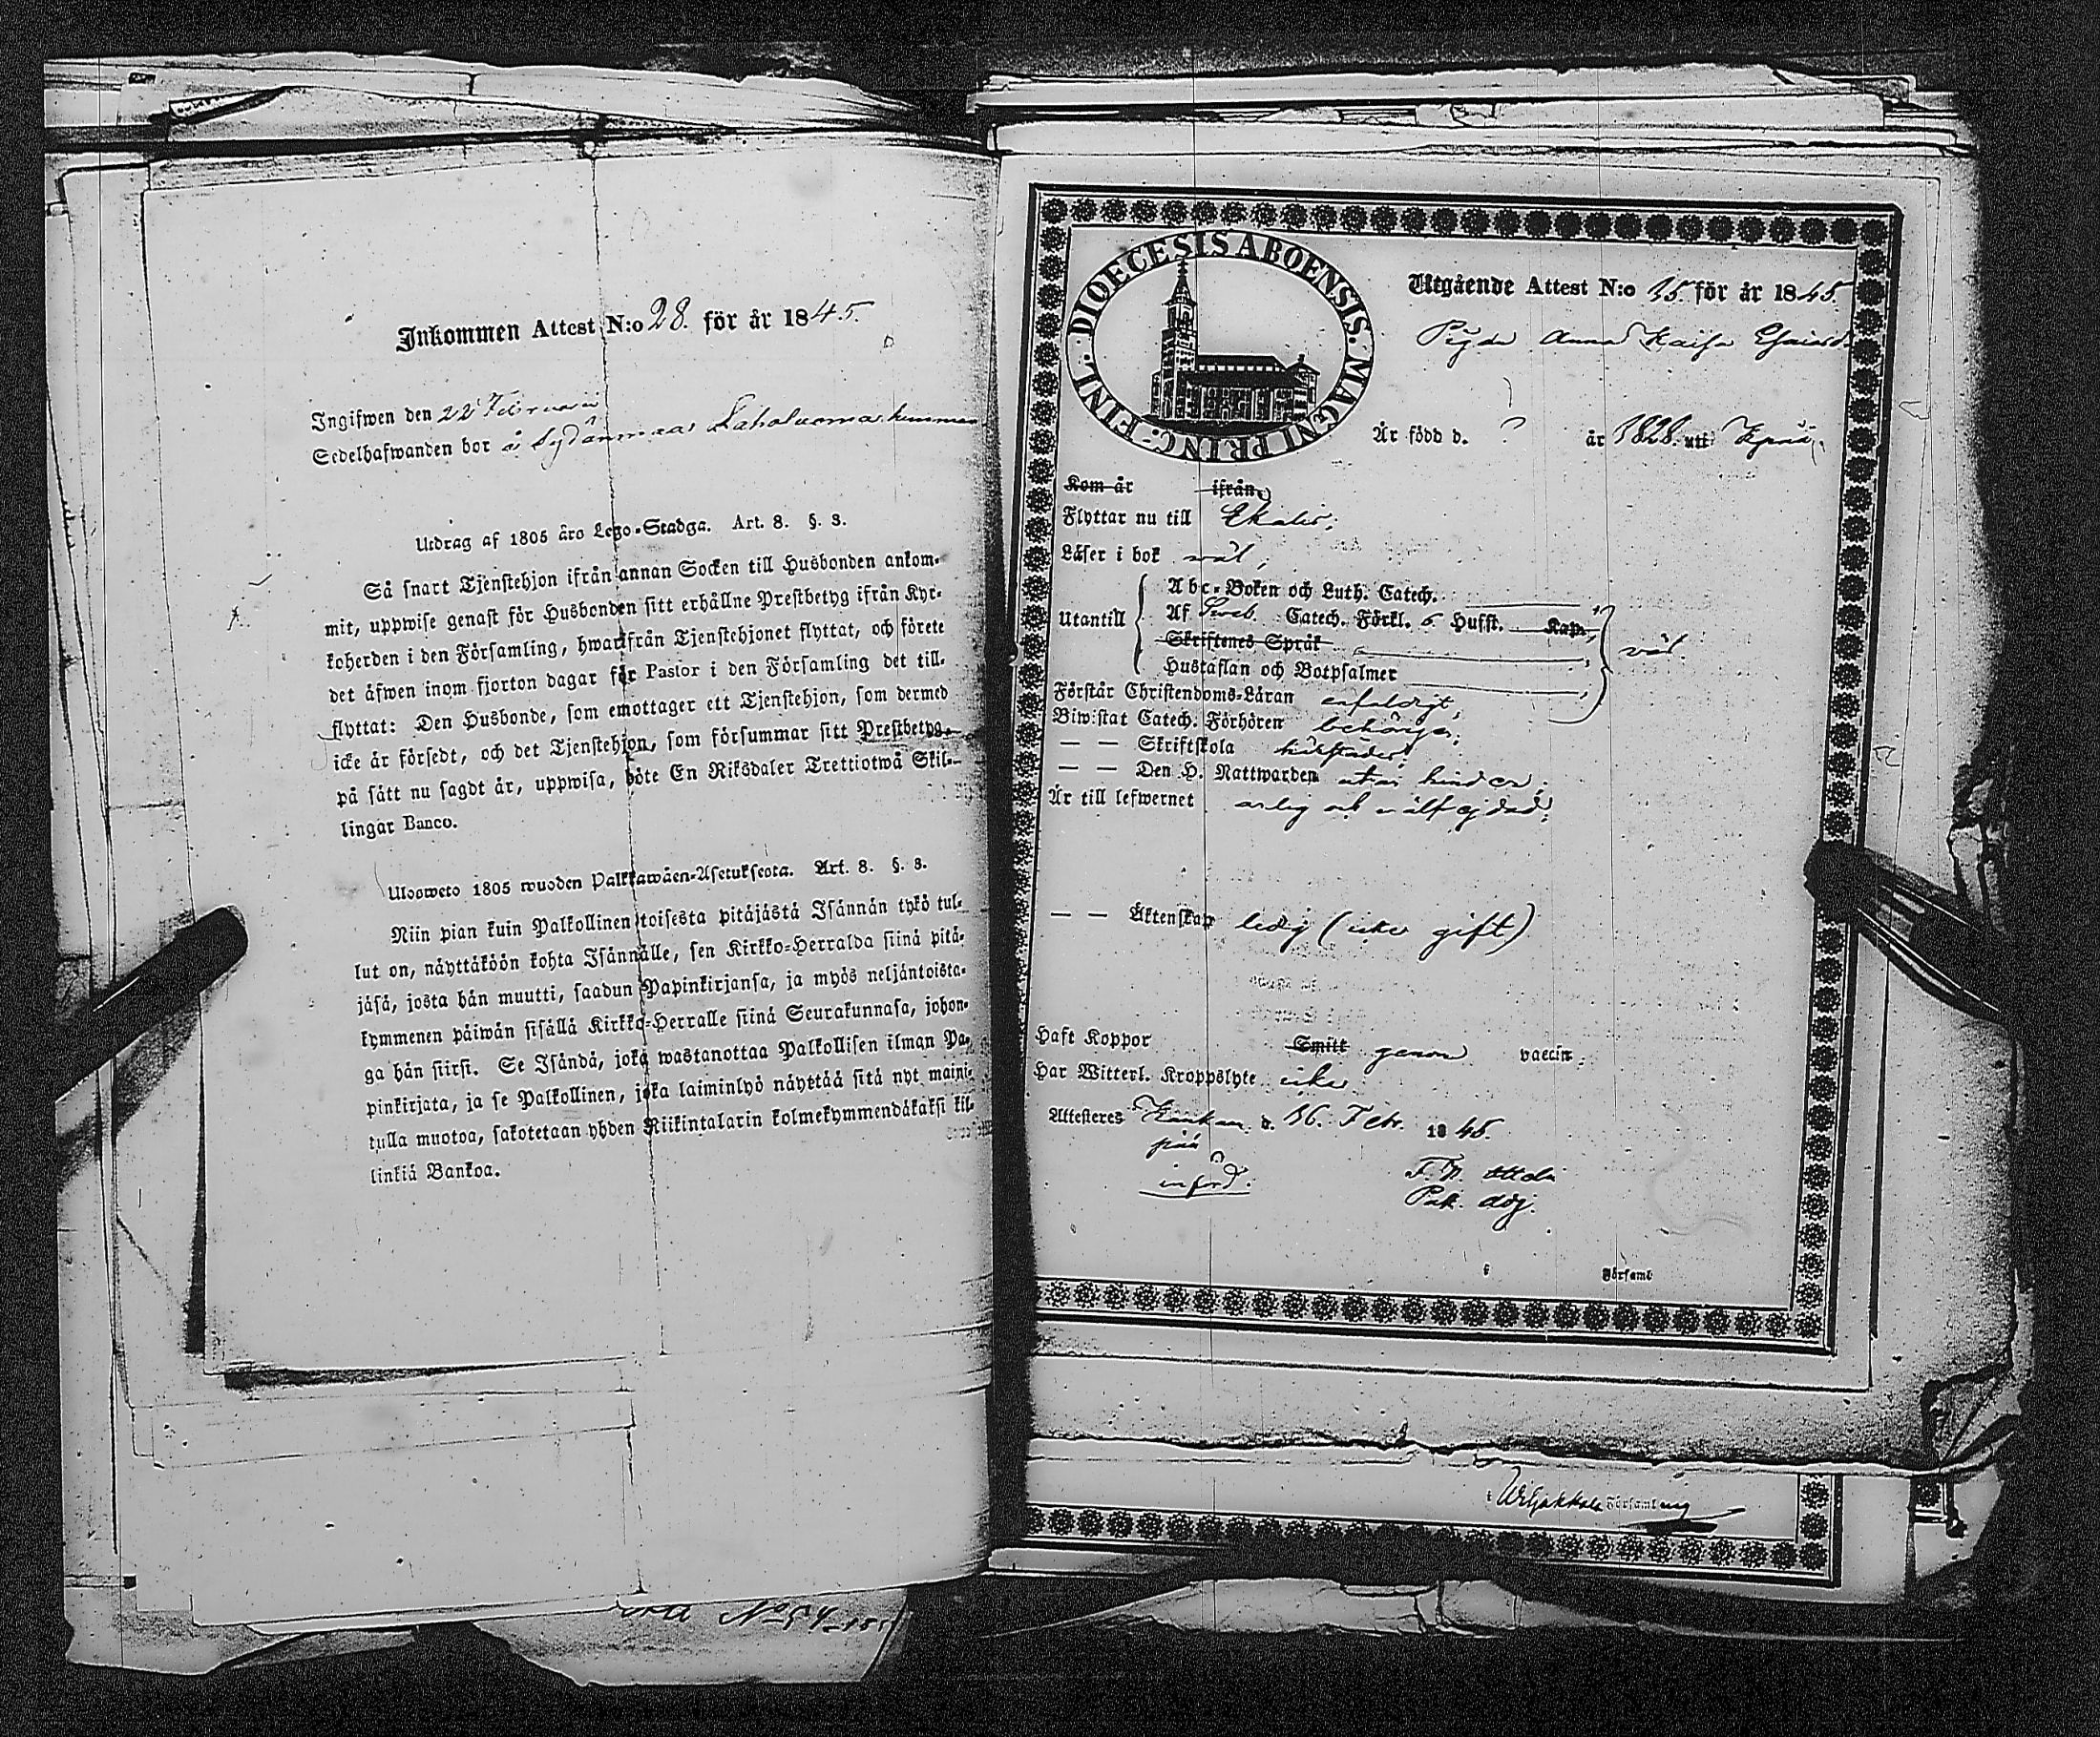 Inkommen Attest N:o 28. för år 1845.
Ingifwen den 22 Februarii
Sedelhafwanden bor å Sydänmaa
Utdrag af 1805 års Lego-Stadga. Art. 8. §. 3.
Så snart Tjenstehjon ifrån annan Socken till Husbonden ankom-
mit, uppwise genast för Husbonden sitt erhållne Prestbetyg ifrån Kyr-
koherden i den Församling, hwarifrån Tjenstehjonet flyttat, och förete
det äfwen inom fjorton dagar för Pastor i den Församling det till-
flyttat: Den Husbonde, som emottager ett Tjenstehjon, som dermed
icke är försedt, och det Tjenstehjon, som försummar sitt Prestbetyg,
på sätt nu sagdt är, uppwisa, böte En Riksdaler Trettiotwå Skil-
lingar Banco.
Ulosweto 1805 wuoden Palkkawäen-Asetuksesta. Art. 8. §. 3.
Niin pian kuin Palkollinen toisesta pitäjästä Isännän tykö tul-
lut on, näyttäköön kohta Isännälle, sen Kirkko-Herralda siinä pitä-
jäsä, josta hän muutti, saadun Papinkirjansa, ja myös neljäntoista-
kymmenen päiwän sisällä Kirkko-Herralle siinä Seurakunnasa, johon-
ga hän siirsi. Se Isändä, joka wastanottaa Palkollisen ilman Pa-
pinkirjata, ja se Palkollinen, joka laiminlyö näyttää sitä nyt maini-
tulla muotoa, sakotetaan yhden Riikintalarin kolmekymmendäkaksi kil-
linkiä Bankoa.
N:o 54
DIOECESIS ABOENSIS. MAGNI PRINC. FINL.
Utgående Attest N:o 35. för år 1845.
Pigan Anna Kaisa
Är född d. ? år 1828 uti
Kom år ifrån
Flyttar nu till
Läser i bok wäl;
Utantill
Abc-Boken och Luth. Catech.
Af Sweb. Catech. Förkl. 6 Hufst. Kap.
Skriftenes Språk
Hustaflan och Botpsalmer
wäl.
Förstår Christendoms-Läran enfaldigt;
Biwistat Catech. Förhören behörigen;
— — Skriftskola
— — Den H. Nattwarden utan hinder;
Är till lefwernet ärlig och wälfrejdad;
— — Äktenskap ledig (icke gift)
Haft Koppor Smitt genom vaccin:
Har Witterl. Kroppslyte icke
Attesteres Kankaanpää d. 16. Febr. 1845.
införd.
Församl
i Urjala Församling